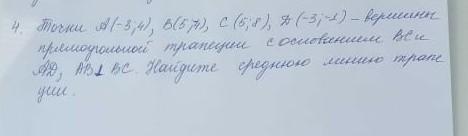 4. Точки А(-3;4), В(5;4), С(5;8), D(-3;-1) - вершины
прямоугольной трапеции с основанием ВС и
АD, АВ⊥ВС. Найдите среднюю линию трапе
ции.